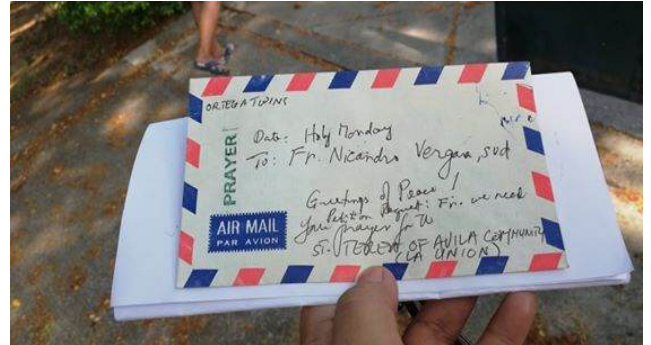 ORTEGA TWINS
PRAYER
Date: Holy Monday
To: Fr. Nicandro Vergara, svd
Greetings of Peace!
Petition Request: Fr. we need
your prayer for
ST. TERESA OF AVILA COMMUNITY
(LA UNION)
AIR MAIL
PAR AVION